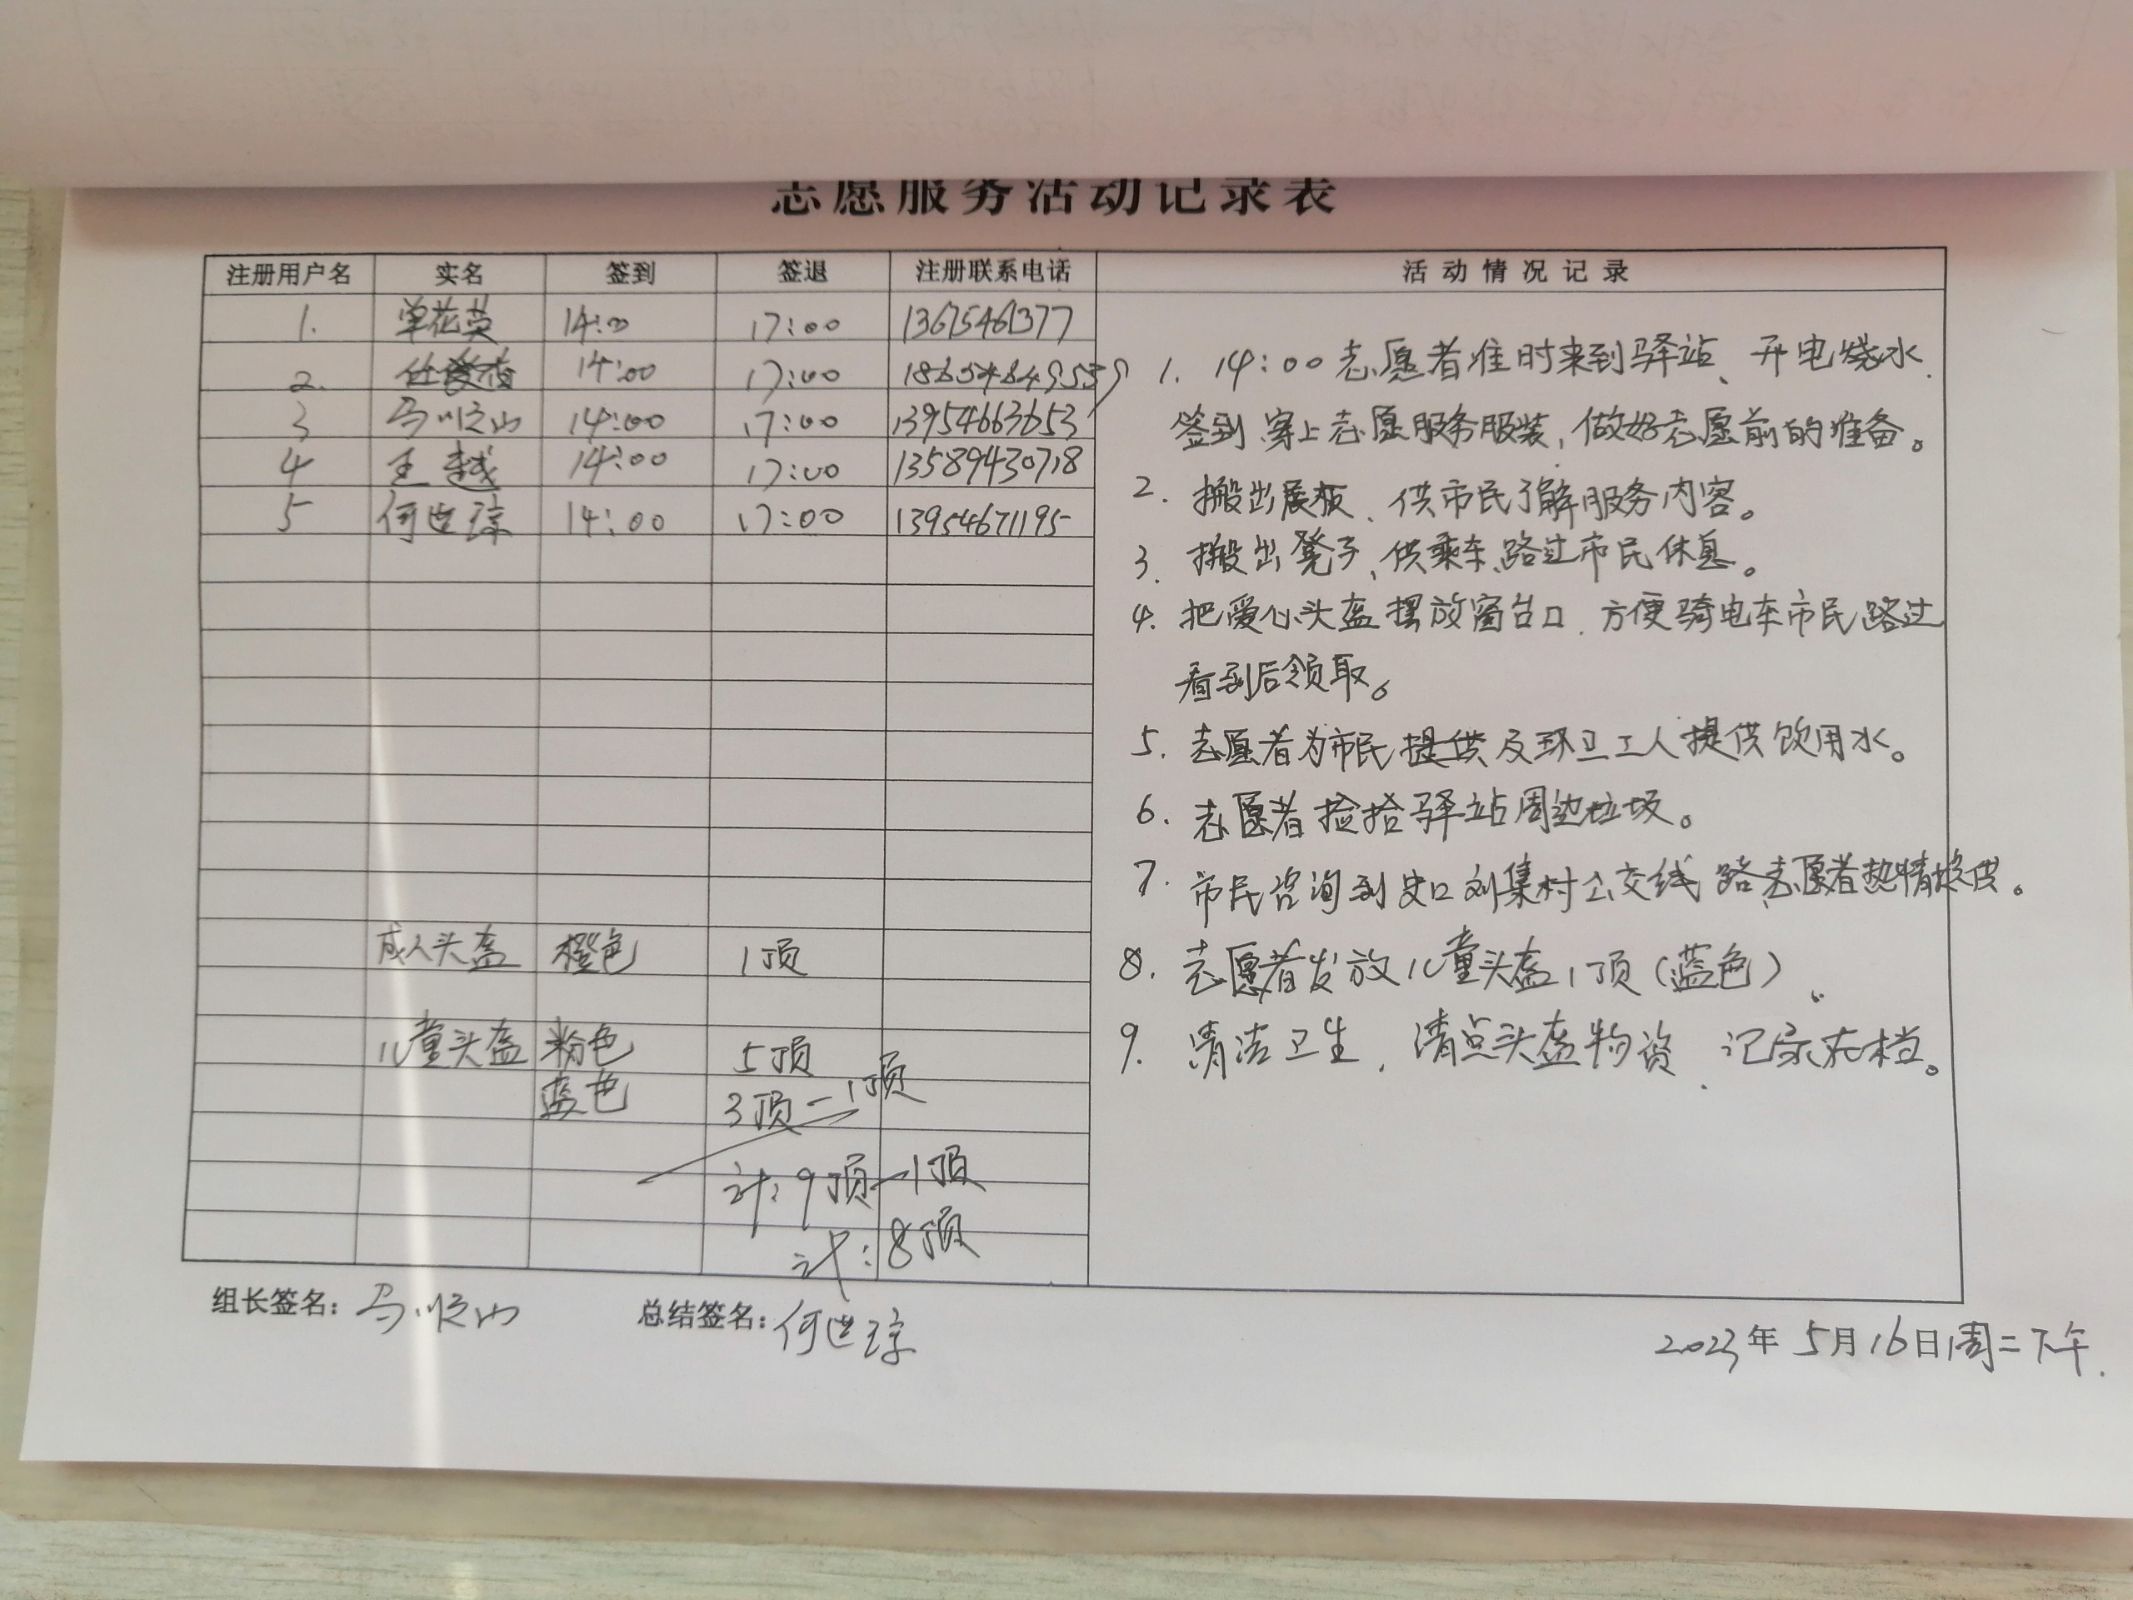 志愿服务活动记录表
注册用户名 实名 签到 签退 注册联系电话 活动情况记录
1. 单花英 14:00 17:00 13675461377
2. 14:00 17:00
3 马顺山 14:00 17:00 13954663653
4 王越 14:00 17:00 13589430718
5 何世琼 14:00 17:00 13954671195
成人头盔 橙色 1顶
儿童头盔 粉色 5顶
蓝色 3顶-1顶
计:9顶-1顶
计:8顶
1. 14:00志愿者准时来到驿站、开电烧水.
签到.穿上志愿服务服装,做好志愿前的准备。
2. 搬出展板、供市民了解服务内容。
3. 搬出凳子、供乘车、路过市民休息。
4. 把爱心头盔摆放窗台口.方便骑电车市民路过
看到后领取。
5. 志愿者为市民提供及环卫工人提供饮用水。
6. 志愿者捡拾驿站周边垃圾。
7. 市民咨询到史口刘集村公交线路、志愿者热情提供。
8. 志愿者发放儿童头盔1顶(蓝色)。
9. 清洁卫生,清点头盔物资、记录在档。
组长签名:马顺山 总结签名:何世琼
2023年5月16日周二下午.